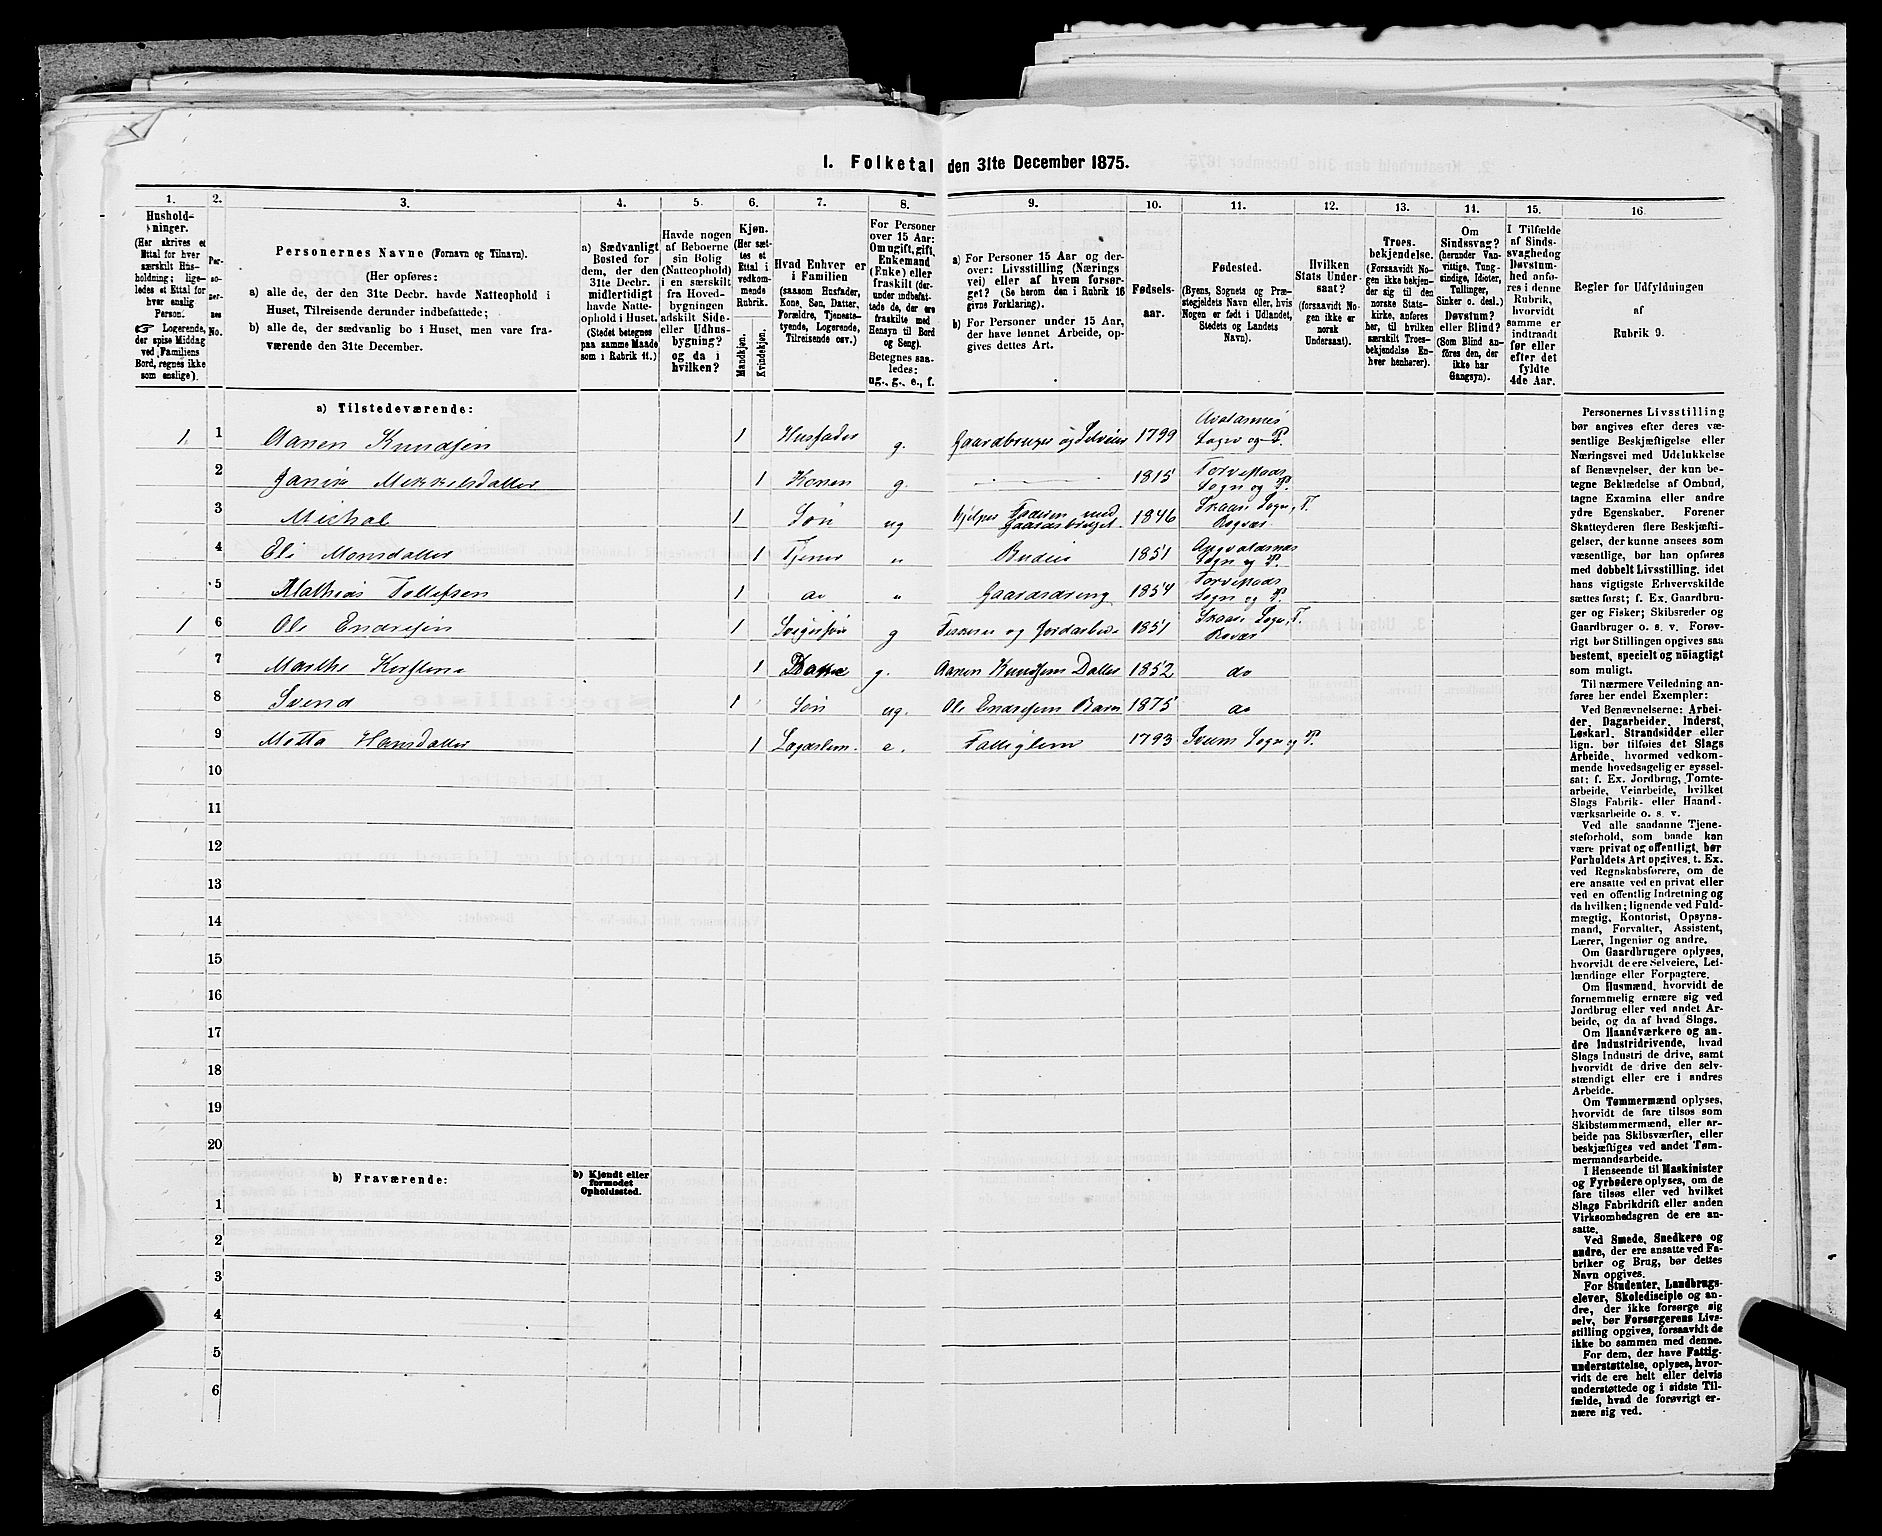 1. Folketal den 31te December 1875.
1.
Hushold-
ninger.
(Her skrives et
Ettal for hver
særskilt Hus-
holdning; lige-
ledes et Ettal for
hver enslig
Person.
☞ Logerende,
der spise Middag
ved Familiens
Bord, regnes ikke
som enslige).
2.
Per-
so-
ner-
nes
No.
3.
Personernes Navne (Fornavn og Tilnavn).
(Her opføres:
a) alle de, der den 31te Decbr. havde Natteophold i
Huset, Tilreisende derunder indbefattede;
b) alle de, der sædvanlig bo i Huset, men vare fra-
værende den 31te December.
4.
a) Sædvanligt
Bosted for
dem, der den
31te Decbr.
midlertidigt
havde Natte-
ophold i Huset.
(Stedet betegnes
paa samme Maade
som i Rubrik 11.)
5.
Havde nogen
af Beboerne
sin Bolig
(Natteophold)
i en særskilt
fra Hoved-
bygningen
adskilt Side-
eller Udhus-
bygning?
og da i
hvilken?
6.
Kjøn.
(Her sæt-
tes et
Ettal i
vedkom-
mende
Rubrik.
Mandkjøn.
Kvindekjøn.
7.
Hvad Enhver er
i Familien
(saasom Husfader,
Kone, Søn, Datter,
Forældre, Tjeneste-
tyende, Logerende,
Tilreisende osv.)
8.
For Personer
over 15 Aar:
Om ugift, gift,
Enkemand
(Enke) eller
fraskilt (der-
under indbefat-
tede de, der
ere fraskilte med
Hensyn til Bord
og Seng).
Betegnes saa-
ledes:
ug., g., e., f.
9.
a) For Personer 15 Aar og der-
over: Livsstilling (Nærings
vei) eller af hvem forsør-
get? (Se herom den i Rubrik 16
givne Forklaring).
b) For Personer under 15 Aar,
der have lønnet Arbeide, op-
gives dettes Art.
10.
Fødsels-
aar.
11.
Fødested.
(Byens, Sognets og Præ-
stegjeldets Navn eller, hvis
Nogen er født i Udlandet,
Stedets og Landets
Navn).
12.
Hvilken
Stats Under-
saat?
(forsaavidt No-
gen ikke er
norsk
Undersaat).
13.
Troes-
bekjendelse.
(Forsaavidt No-
gen ikke bekjen-
der sig til den
norske Stats-
kirke, anføres
her, til hvilken
særskilt Troes-
bekjendelse En-
hver henhører).
14.
Om
Sindssvag?
(herunder Van-
vittige, Tung-
sindige, Idioter,
Tullinger,
Sinker o. desl.)
Døvstum?
eller Blind?
(Som Blind an-
føres den, der
ikke har
Gangsyn).
15.
I Tilfælde
af Sinds-
svaghed og
Døvstum-
hed anfø-
res i denne
Rubrik,
hvorvidt
samme er
indtraadt
før eller
efter det
fyldte
4de Aar.
16
Regler for Udfyldningen
af
Rubrik 9.
a) Tilstedeværende:
1. 1 Aanen Knudsen 1 Husfader g. Gaardbruger og Selveier 1799 Sogn og P.
2 Mikkelsdatter 1 Konen g. 1815 Torvestads Sogn og P.
3 Michal 1 Søn ug Hjelper Faderen med Gaardsbruget 1846 Skaare Sogn, T.
4 Eli Monsdatter 1 Tjener " Budeie 1851 Sogn og P.
5 Mathias Tollefsen 1 do " Gaardsdreng 1854 Torvestads Sogn og P.
1 6 Ole Endresen 1 Svigersøn g Fisker og Jordarbeide 1851 Skaare Sogn, T. Røvær
7 Marthe Kirstine 1 g. Aanen Knudsens Datter 1852 do
8 Svend 1 Søn ug. Ole Endresens Barn 1875 do
9 Metta Hansdatter 1 Lægdslem. e. Fattiglem 1793 Sogn og P.
10
11
12
13
14
15
16
17
18
19
20
b) Fraværende:
b) Kjendt eller
formodet
Opholdssted.
1
2
3
4
5
6
Personernes Livsstilling
bør angives efter deres væ-
sentlige Beskjæftigelse eller
Næringsvei med Udelukkelse
af Benævnelser, der kun be-
tegne Beklædelse af Ombud,
tagne Examina eller andre
ydre Egenskaber. Forener
Skatteyderen flere Beskjæfti-
gelser, der kunne ansees som
væsentlige, bør han opføres
med dobbelt Livsstilling, idet
hans vigtigste Erhvervskilde
sættes først; f. Ex. Gaardbru-
ger og Fisker; Skibsreder og
Gaardbruger o. s. v. Forøv-
rigt bør Stillingen opgives saa
bestemt, specielt og nøiagtigt
som muligt.
Til nærmere Veiledning an-
føres her endel Exempler:
Ved Benævnelserne: Arbei-
der, Dagarbeider, Inderst,
Løskarl, Strandsidder eller
lign. bør tilføies det Slags
Arbeide, hvormed vedkom-
mende hovedsagelig er syssel-
sat; f. Ex. Jordbrug, Tomte-
arbeide, Veiarbeide, hvilket
Slags Fabrik- eller Haand-
værksarbeide o. s. v.
Ved alle saadanne Tjene-
steforhold, som baade kan
være privat og offentligt, bør
Forholdets Art opgives, t. Ex.
ved Regnskabsførere, om de
ere ansatte ved en privat eller
ved en offentlig Indretning og
da hvilken; lignende ved Fuld-
mægtig, Kontorist, Opsyns-
mand, Forvalter, Assistent,
Lærer, Ingeniør og andre.
Om Gaardbrugere oplyses,
hvorvidt de ere Selveiere, Lei-
lændinge eller Forpagtere.
Om Husmænd, hvorvidt de
fornemmelig ernære sig ved
Jordbrug eller ved andet Ar-
beide, og da af hvad Slags.
Om Haandværkere og an-
dre Industridrivende, hvad
Slags Industri de drive, samt
hvorvidt de drive den selv-
stændigt eller ere i andres
Arbeide.
Om Tømmermænd oplyses,
hvorvidt de fare tilsøs som
Skibstømmermænd, eller ar-
beide paa Skibsværfter, eller
beskjæftiges ved andet Tøm-
mermandsarbeide.
I Henseende til Maskinister
og Fyrbødere oplyses, om de
fare tilsøs eller ved hvilket
Slags Fabrikdrift eller anden
Virksomhedsgren de ere an-
satte.
Ved Smede, Snedkere og
andre, der ere ansatte ved Fa-
briker og Brug, bør dettes
Navn opgives.
For Studenter, Landbrugs-
elever, Skoledisciple og an-
dre, der ikke forsørge sig
selv, bør Forsørgerens Livs-
stilling opgives, forsaavidt de
ikke bo sammen med denne.
For dem, der have Fattig-
understøttelse, oplyses, hvor-
vidt de ere helt eller delvis
understøttede og i sidste Til-
fælde, hvad de forøvrigt er-
nære sig ved.